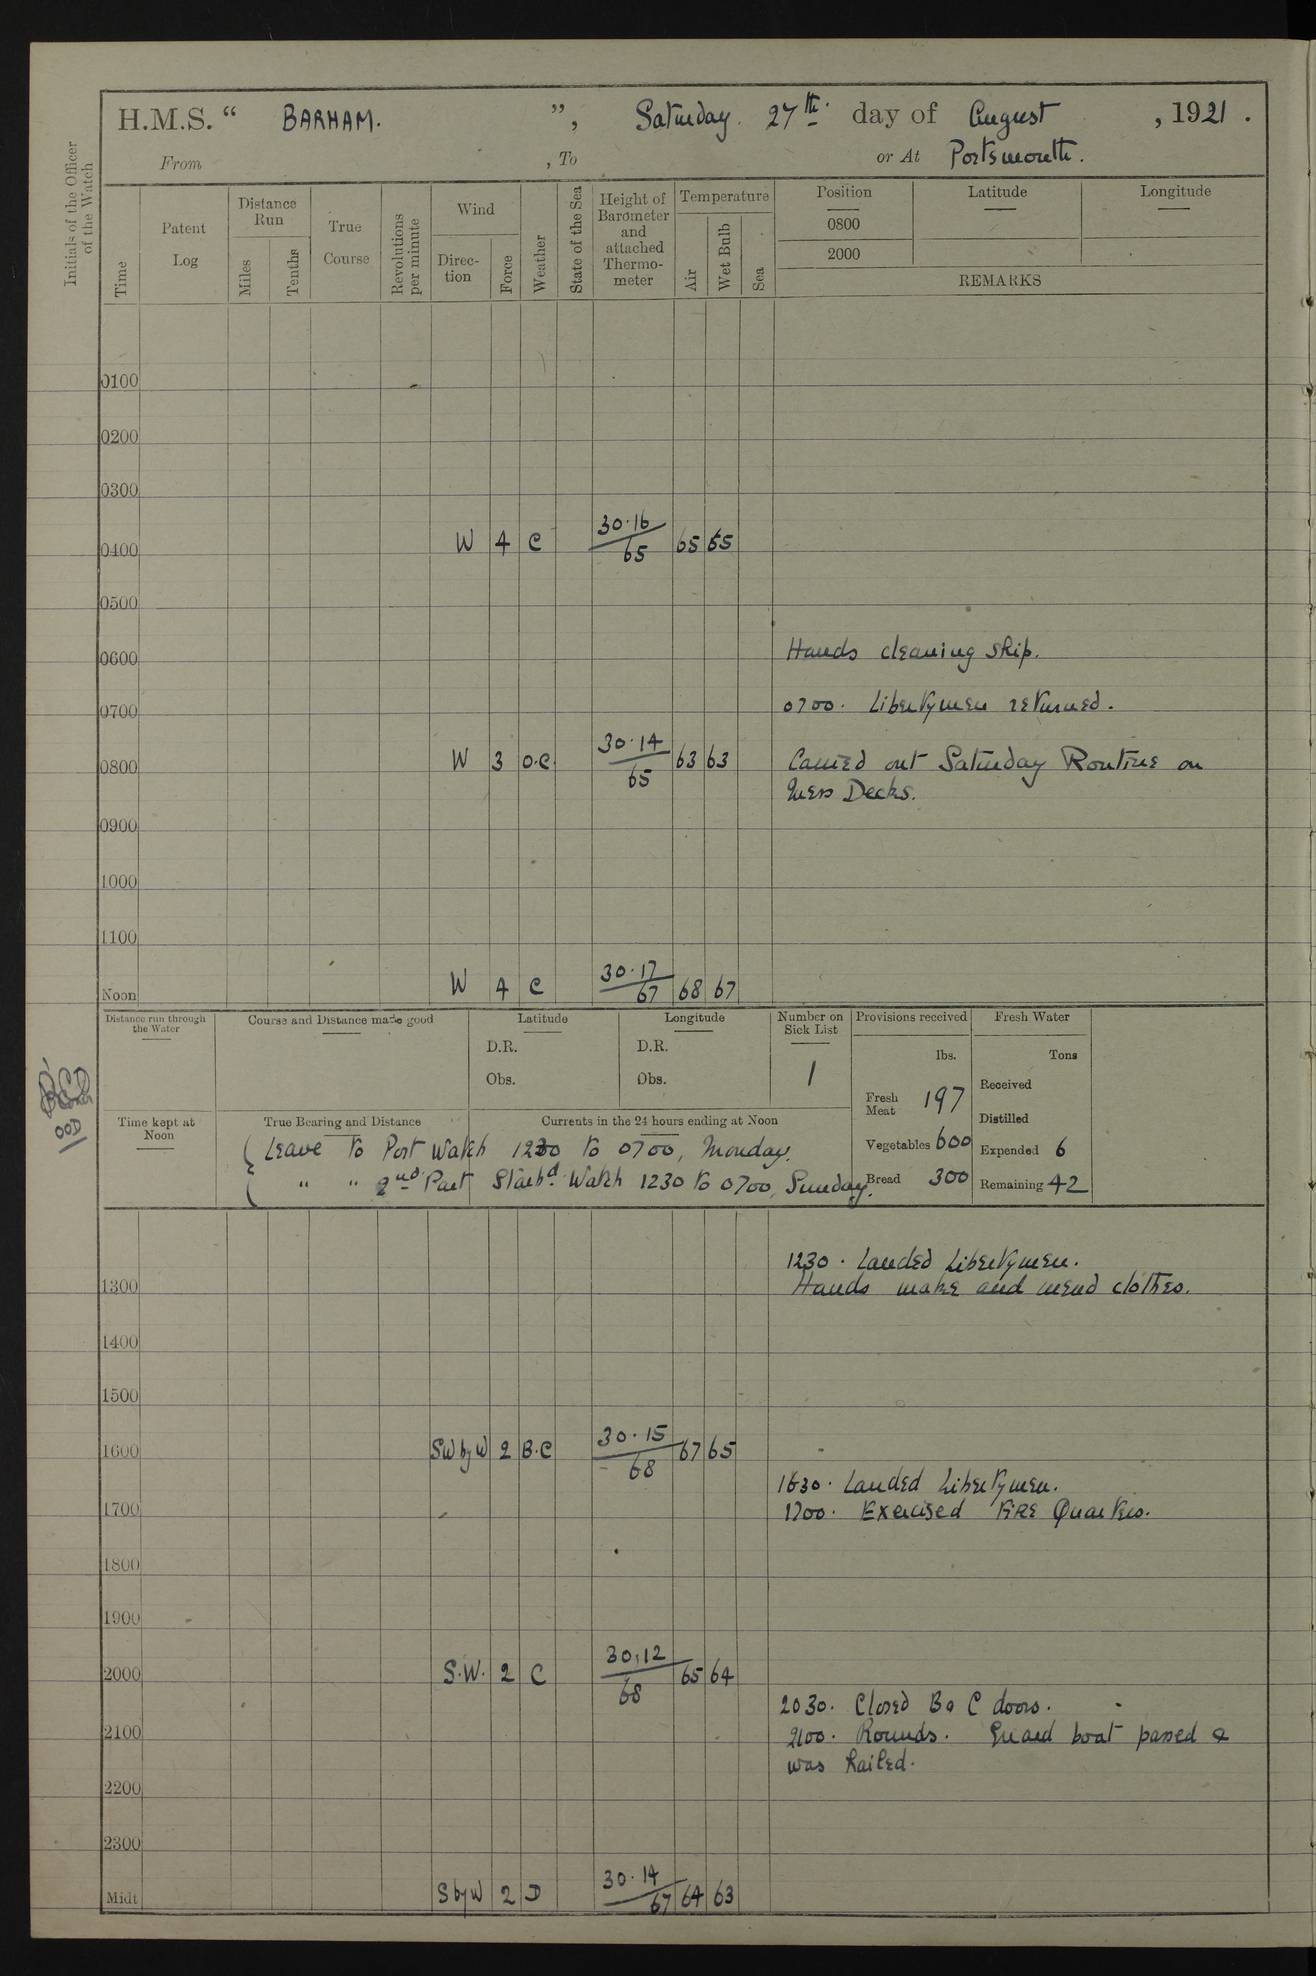 H.M.S. “ BARHAM. ”, Saturday. 27th. day of August, 1921.
From , To or At Portsmouth.
Initials of the Officer of the Watch
Time
Patent Log
Distance Run
Miles
Tenths
True Course
Revolutions per minute
Wind
Direc-tion
Force
Weather
State of the Sea
Height of Barometer and attached Thermo-meter
Temperature
Air
Wet Bulb
Sea
Position Latitude Longitude
0800
2000
REMARKS
0100
0200
0300
0400 W 4 C 30.16/65 65 65
0500
0600 Hands cleaning ship.
0700 0700. Libertymen returned.
0800 W 3 O.C. 30.14/65 63 63 Carried out Saturday Routine on
Mess Decks.
0900
1000
1100
Noon W 4 C 30.17/67 68 67
Distance run through the Water
Course and Distance made good
Latitude
D.R.
Obs.
Longitude
D.R.
Obs.
Number on Sick List
1
Provisions received
lbs.
Fresh Meat 197
Vegetables 600
Bread 300
Fresh Water
Tons
Received
Distilled
Expended 6
Remaining 42
OOD
Time kept at Noon
True Bearing and Distance
Currents in the 24 hours ending at Noon
Leave to Port Watch 1230 to 0700, Monday.
" " 2nd Part Starbd. Watch 1230 to 0700, Sunday.
1230. Landed Libertymen.
1300 Hands make and mend clothes.
1400
1500
1600 SW by W 2 B.C 30.15/68 67 65
1630. Landed Libertymen.
1700 1700. Exercised Fire Quarters.
1800
1900
2000 S.W. 2 C 30.12/68 65 64
2030. Closed B & C doors.
2100 2100. Rounds. Guard boat passed &
was hailed.
2200
2300
Midt S by W 2 D 30.14/67 64 63